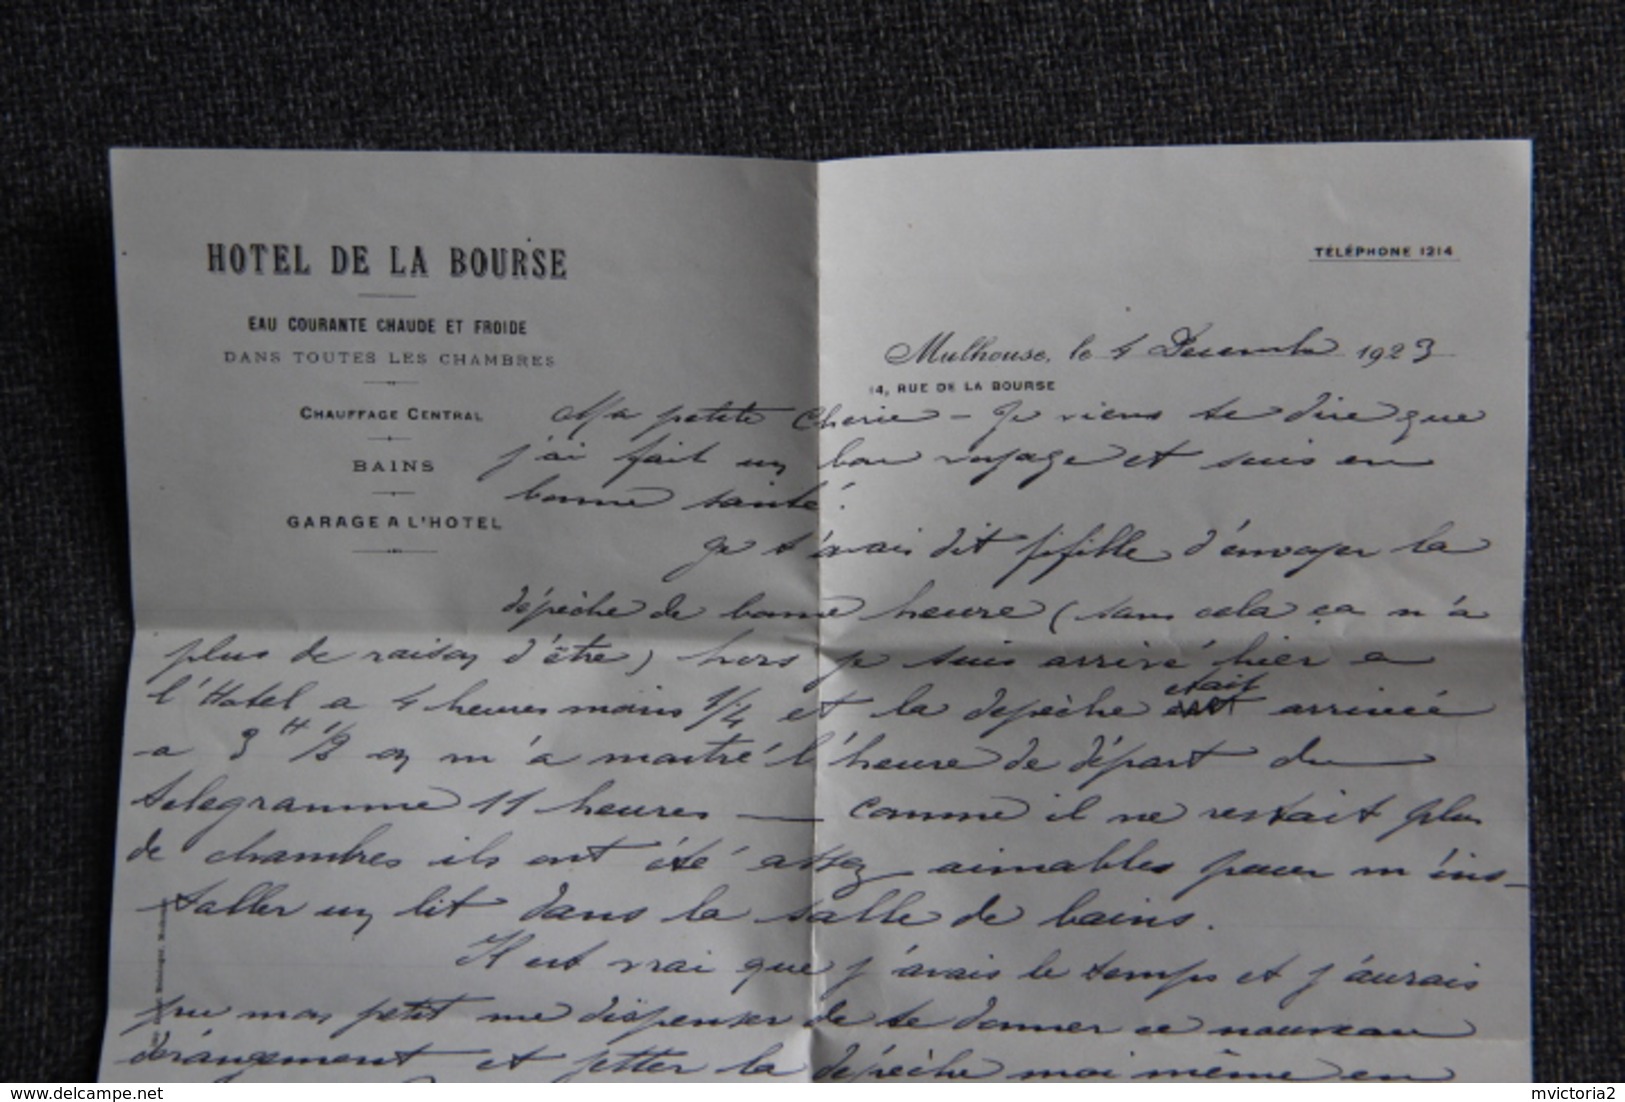 HOTEL DE LA BOURSE
EAU COURANTE CHAUDE ET FROIDE
DANS TOUTES LES CHAMBRES
CHAUFFAGE CENTRAL
BAINS
GARAGE A L'HOTEL
TÉLÉPHONE 1214
Mulhouse, le 4 Decembre 1923
14, RUE DE LA BOURSE
Ma petite Cherie - Je viens te dire que
j'ai fait un bon voyage et suis en
bonne santé.
Je t'avais dit fifille d'envoyer la
dépèche de bonne heure (sans cela ça n'a
plus de raison d'être) hors je suis arrivé hier a
l'Hotel a 4 heures moins 1/4 et la depèche etait arrivée
a 3 H 1/2 on m'a montré l'heure de départ du
telegramme 11 heures — comme il ne restait plus
de chambres ils ont été assez aimables pour m'ins-
taller un lit dans la salle de bains.
Il est vrai que j'avais le temps et j'aurais
pu mon petit me dispenser de te donner ce nouveau
dérangement et jetter la dépèche moi même en
delcampe.net
mvictoria2